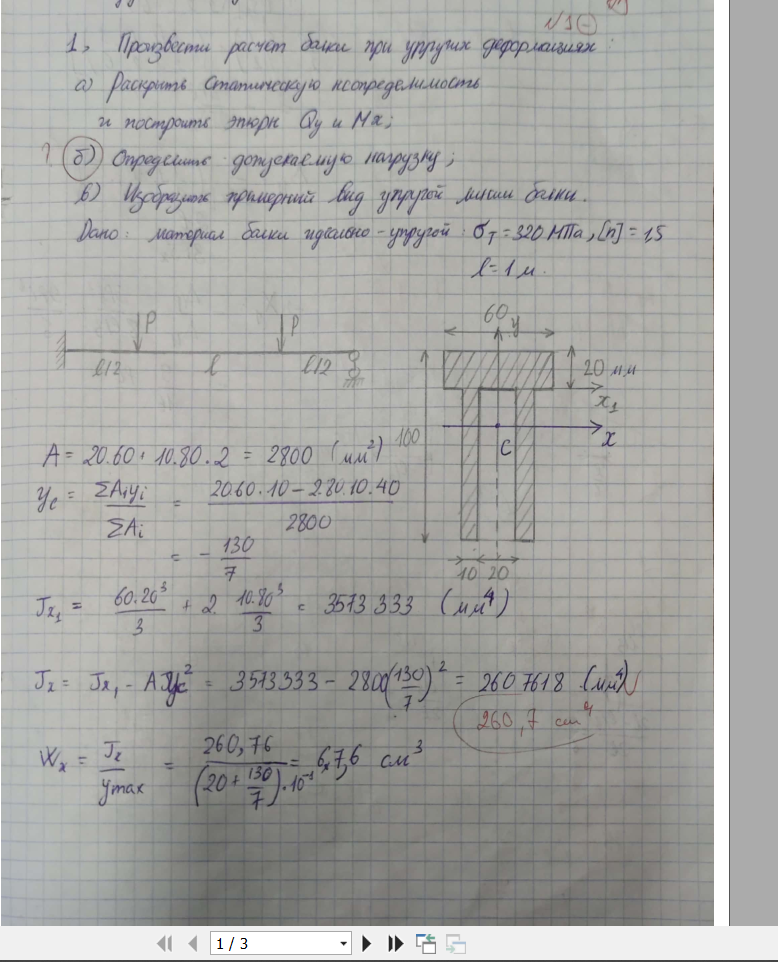 N1 (-)
1, Произвести расчет балки при упругих деформациях:
а) Раскрыть статическую неопределимость
и построить эпюры Qy и Mx;
? б) Определить допускаемую нагрузку;
в) Изобразить примерный вид упругой линии балки.
Дано: материал балки идеально-упругой: σт = 320 МПа, [n] = 1,5
l = 1 м.
P P
l/2 l l/2
60 y
20 мм
x1
x
C
100
10 20
A = 20.60 + 10.80.2 = 2800 (мм²)
yc = ΣAiyi / ΣAi = 20.60.10 - 2.80.10.40 / 2800
= - 130/7
Jx1 = 60.20³/3 + 2. 10.80³/3 = 3573 333 (мм⁴)
Jx = Jx1 - A yc² = 3573333 - 2800(130/7)² = 260 7618 (мм⁴)
260,7 cm⁴
Wx = Jx / ymax = 260,76 / (20 + 130/7).10⁻¹ = 67,6 см³
1 / 3